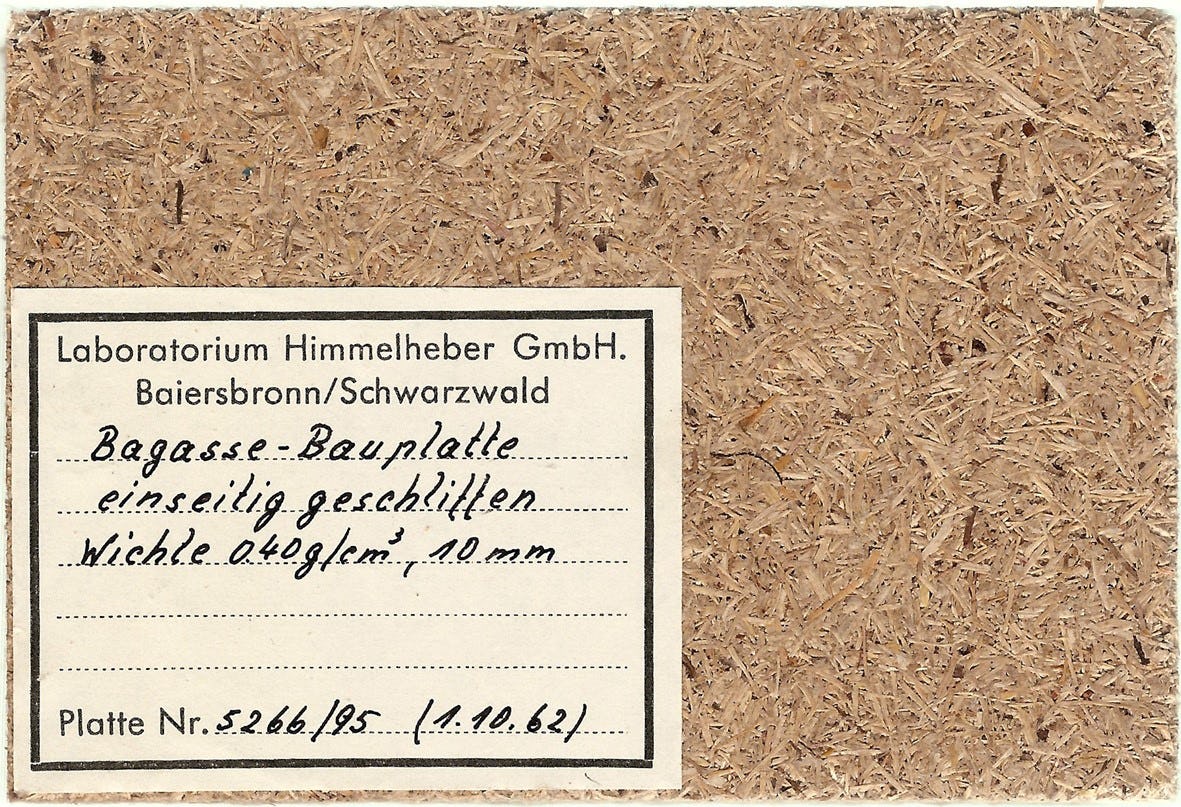 Laboratorium Himmelheber GmbH.
Baiersbronn/Schwarzwald
Bagasse-Bauplatte
einseitig geschliffen
Wichte 0.40g/cm³, 10 mm
Platte Nr. 5266/95 (1.10.62)